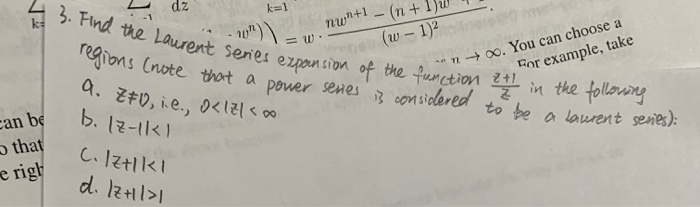 dz
k=1
k=
-1
wⁿ)) = w · (nwⁿ⁺¹ − (n + 1)w
(w − 1)²
n → ∞. You can choose a
For example, take
can be
o that
e righ
3. Find the Laurent series expansion of the function (z+1)/z in the following
regions (note that a power series is considered to be a laurent series):
a. z≠0, i.e., 0<|z|<∞
b. |z-1|<1
c. |z+1|<1
d. |z+1|>1